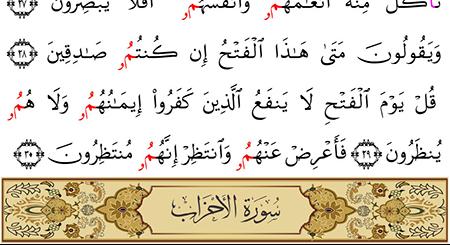 تَأۡكُلُ مِنۡهُ أَنۡعَٰمُهُمُۥ وَأَنفُسُهُمُۥ أَفَلَا يُبۡصِرُونَ ٢٧
وَيَقُولُونَ مَتَىٰ هَٰذَا ٱلۡفَتۡحُ إِن كُنتُمُۥ صَٰدِقِينَ ٢٨
قُلۡ يَوۡمَ ٱلۡفَتۡحِ لَا يَنفَعُ ٱلَّذِينَ كَفَرُوٓاْ إِيمَٰنُهُمُۥ وَلَا هُمُۥ
يُنظَرُونَ ٢٩ فَأَعۡرِضۡ عَنۡهُمُۥ وَٱنتَظِرۡ إِنَّهُمُۥ مُنتَظِرُونَ ٣٠
سُورَةُ الأَحْزَابِ